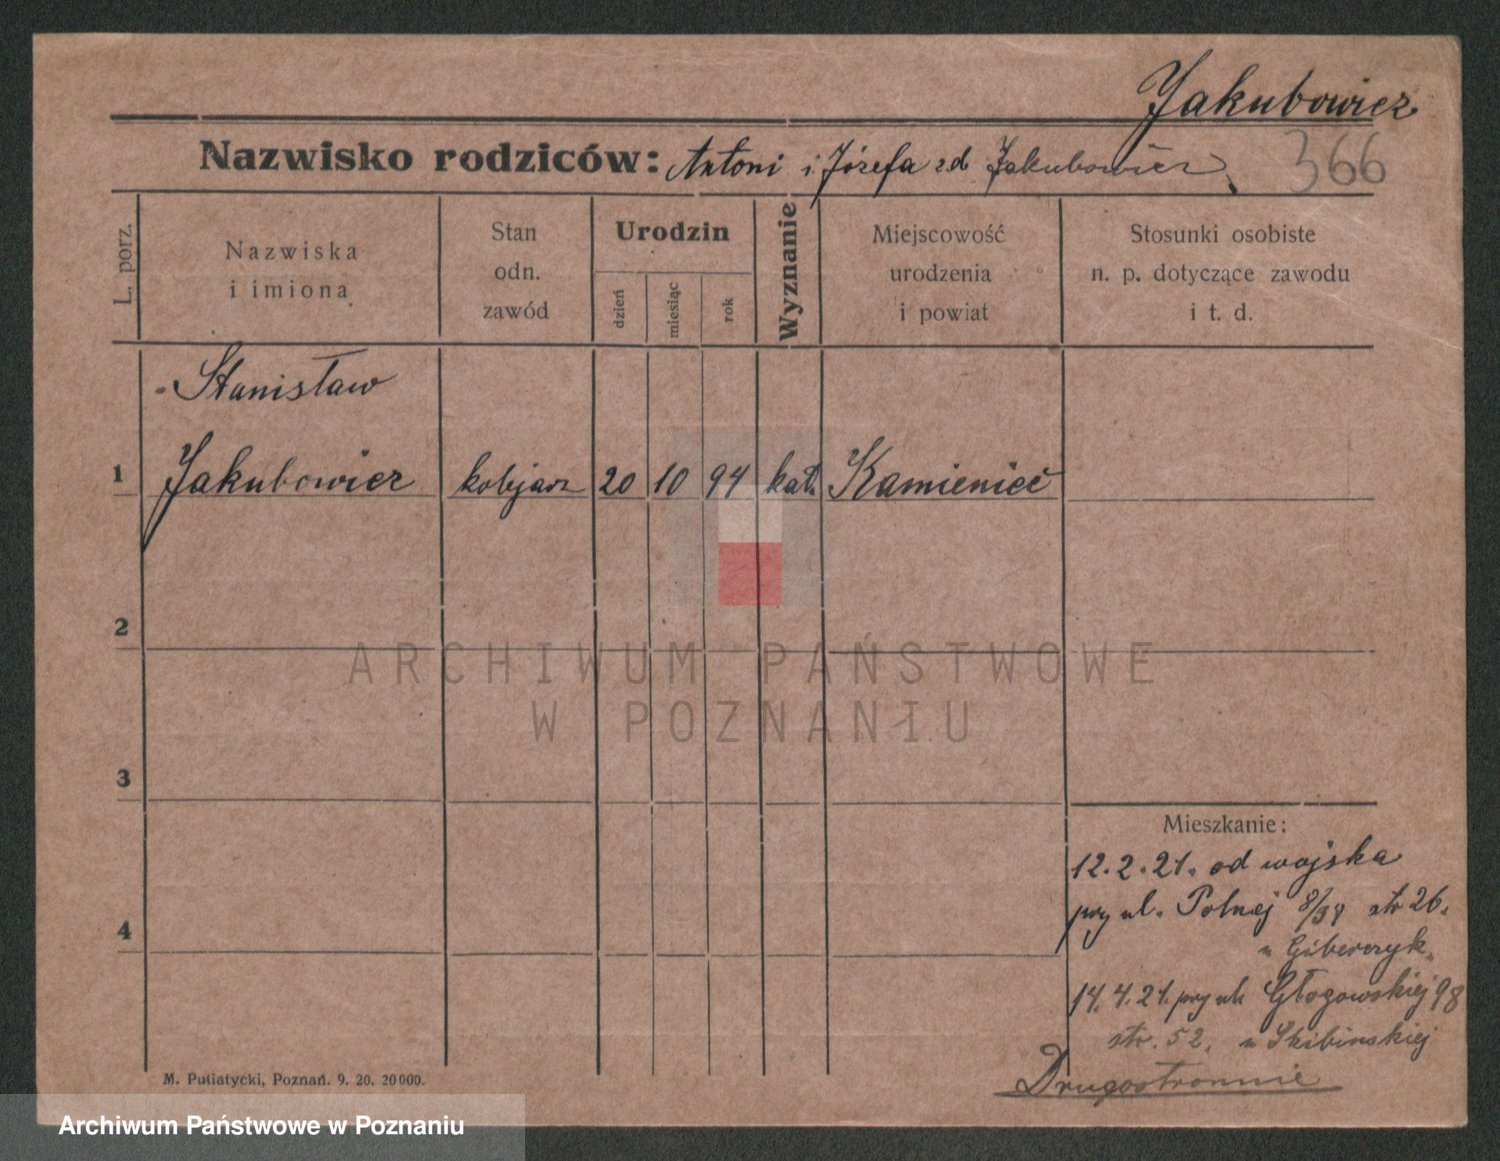 Jakubowicz
Nazwisko rodziców: Antoni i Józefa zd Jakubowicz
366
L. porz.
Nazwiska
i imiona
Stan
odn.
zawód
Urodzin
dzień
miesiąc
rok
Wyznanie
Miejscowość
urodzenia
i powiat
Stosunki osobiste
n. p. dotyczące zawodu
i t. d.
Stanisław
1 Jakubowicz kolejarz 20 10 94 kat. Kamieniec
2
ARCHIWUM PAŃSTWOWE
W POZNANIU
3
Mieszkanie:
12.2.21. od wojska
przy ul. Polnej 8/34 str 26.
u
4
14.4.21. przy ul. Głogowskiej 98
str. 52. u Skibinskiej
Drugostronnie
M. Putiatycki, Poznań. 9. 20. 20000.
Archiwum Państwowe w Poznaniu